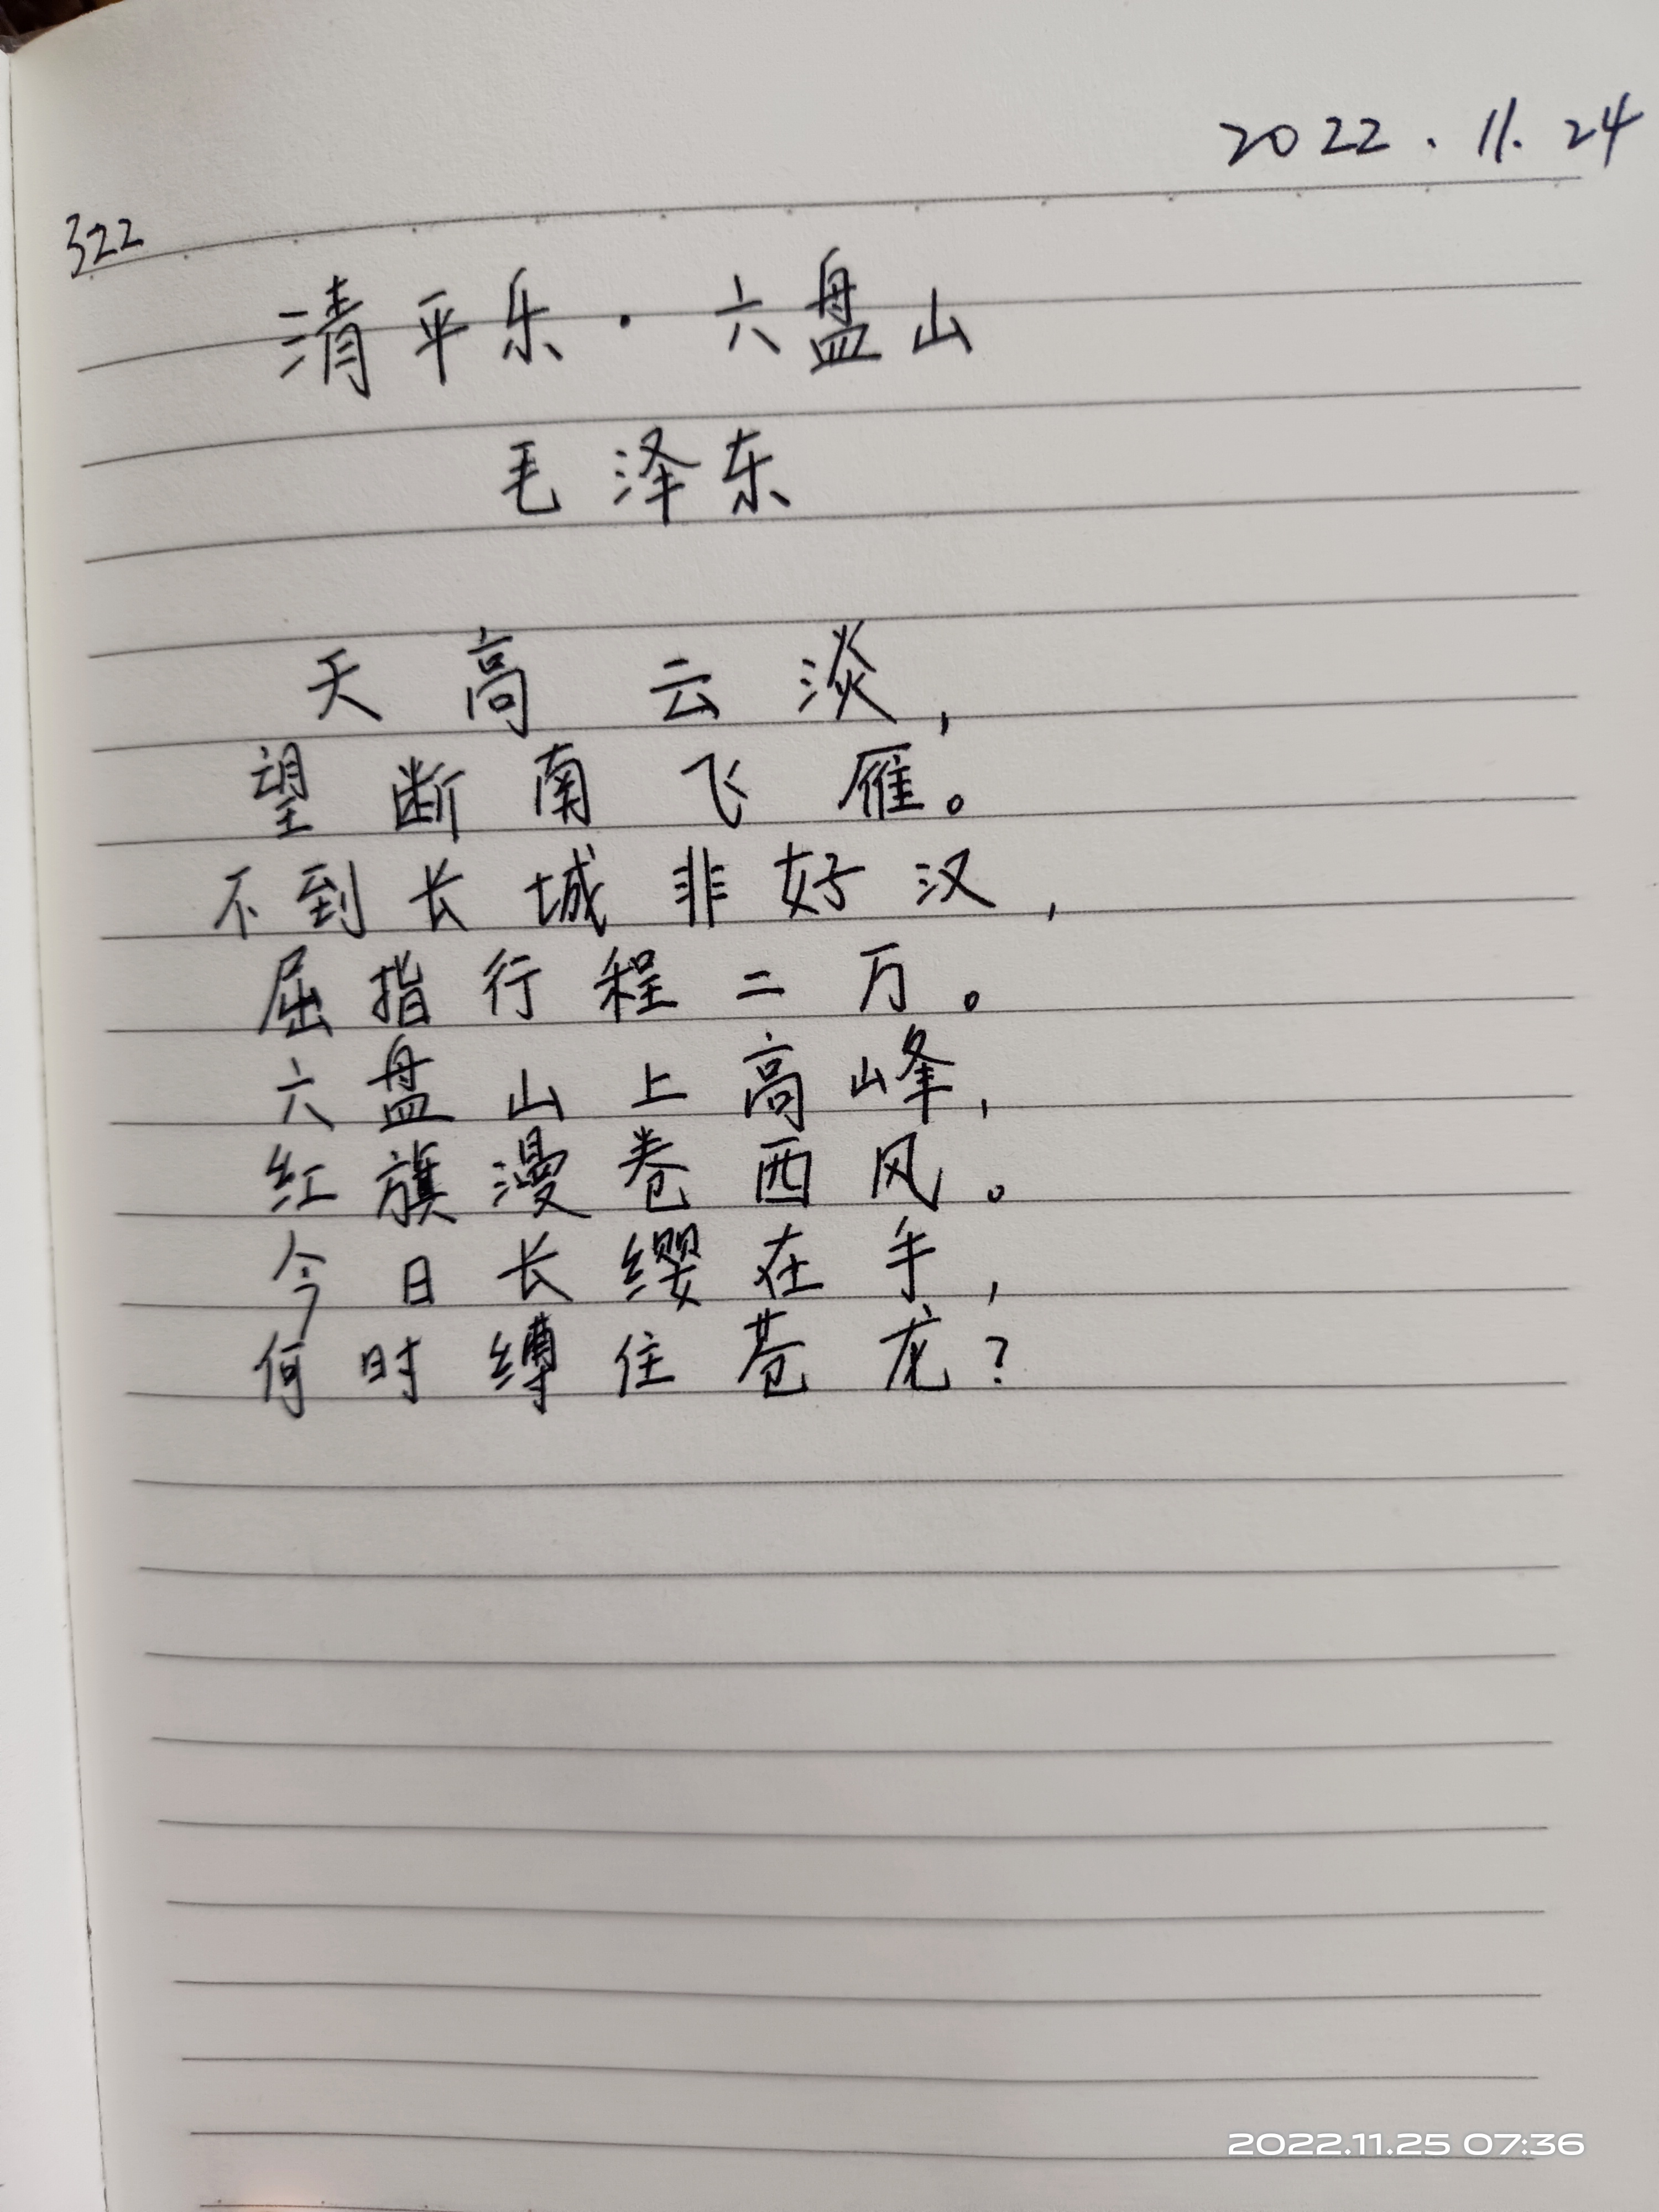 2022.11.24
322
清平乐·六盘山
毛泽东
天高云淡，
望断南飞雁。
不到长城非好汉，
屈指行程二万。
六盘山上高峰，
红旗漫卷西风。
今日长缨在手，
何时缚住苍龙？
2022.11.25 07:36